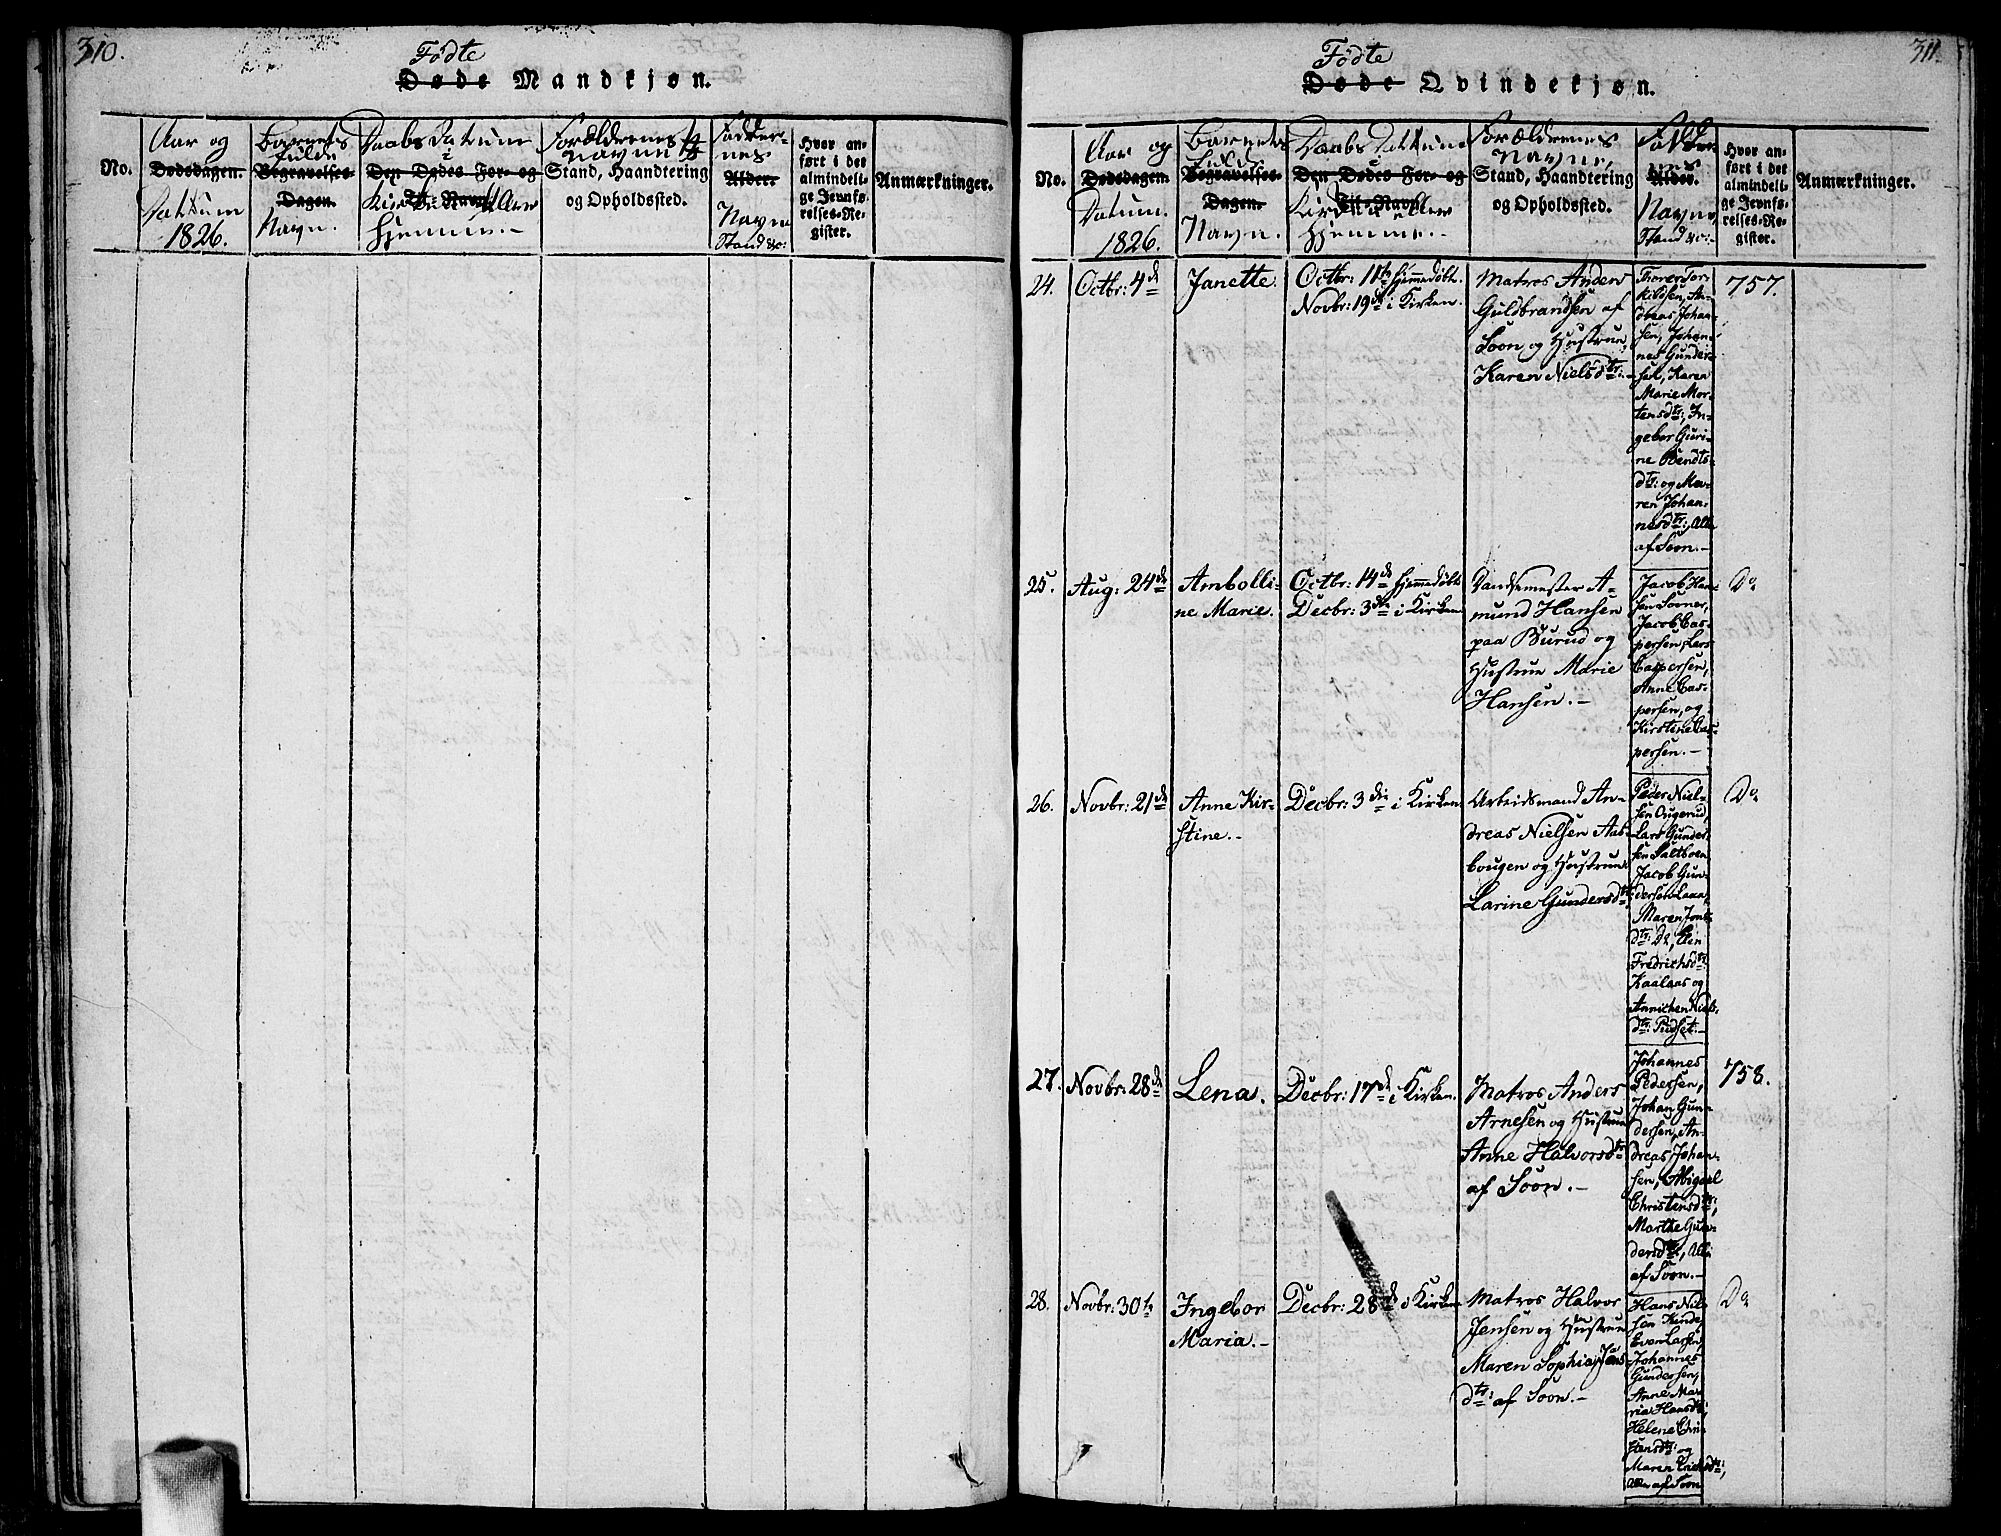 310.
Fødte
Døde Mandkjøn.
No.
Aar og
Dødsdagen.
Dattum
1826.
Barnets
fulde
Begravelses-
Dagen.
Navn.
Daabs Datum
i
Den Dødes For- og
Til-Navn
Kirken eller
Hjemme.-
Forældrenes
Navne
Stand, Haandtering
og Opholdssted.
Fadder-
nes
Alder.
Navne
Stand &c:
Hvor an-
ført i det
almindeli-
ge Jevnfø-
relses-Re-
gister.
Anmærkninger.
311.
Fødte
Døde Qvindekjøn.
No.
Aar og
Dødsdagen.
Datum.
1826.
Barnets
fulde
Begravelses-
Dagen.
Navn.
Daabs Dattum
Den Dødes For- og
Til-Navn
Kirken eller
Hjemme.-
Forældrenes
Navne,
Stand, Haandtering
og Opholdssted.
Fadder-
nes
Alder.
Navne,
Stand &c:-
Hvor an-
ført i det
almindeli-
ge Jevnfø-
relses-Re-
gister.
Anmærkninger.
24.
Octbr: 4de
Janette.
Octbr: 11te hjemmedøbt.
Novbr: 19de i Kirken.
Matros Anders
Guldbrandsen af
Soon og Hustrue
Karen Nielsdtr:-
Torer Tor-
kildsen, An-
dreas Johan-
sen, Johan-
nes Gunder-
sen, Karen
Marie Mor-
tensdtr:, In-
gebor Guri-
ne Bendts-
dtr: og Ma-
ren Johan-
nesdtr:, Alle
af Soon.-
757.
25.
Aug: 24de
Ambolli-
ne Marie.
Octbr: 14de hjemmedøbt
Decbr: 3die i Kirken
Dandsemester A-
mund Hansen
paa Burud og
Hustrue Marie
Hansen.-
Jacob Han-
sen Sorner,
Jacob Cas-
persen, Lars
Caspersen,
Anne Cas-
persen, og
Kirstine Cas-
persen.-
Do
26.
Novbr: 21de
Anne Kir-
stine.-
Decbr: 3die i Kirken
Arbeidsmand An-
dreas Nielsen Aas-
bougen og Hustrue
Larine Gundersdtr:
Peder Niel-
sen
Lars Gunder-
sen Saltboen
Jacob Gun-
dersen Laaa,
Maren Jons-
dtr: Do,
Fredrichsdtr:
Kaalaas og
Annichen Niels-
dtr: Pudset.-
Do
27.
Novbr: 28de
Lena.
Decbr: 17de i Kirken.
Matros Anders
Arnesen og Hustrue
Anne Halvorsdtr:
af Soon.-
Johannes
Pedersen,
Johan Gun-
dersen, An-
dreas Johan-
sen, Abigael
Christensdtr:,
Marthe Gun-
dersdtr:, Alle
af Soon.-
758.
28.
Novbr: 30te
Ingebor
Maria.-
Decbr: 28de i Kirken
Matros Halvor
Jensen og Hustrue
Maren Sophia Jens-
dtr: af Soon.-
Hans Niel-
sen Kinde
Even Larsen,
Johannes
Gundersen,
Anne Ma-
ria Hansdtr:,
Helene Chri-
stensdtr: og
Maren Erichsdtr:,
Alle af Soon
Do